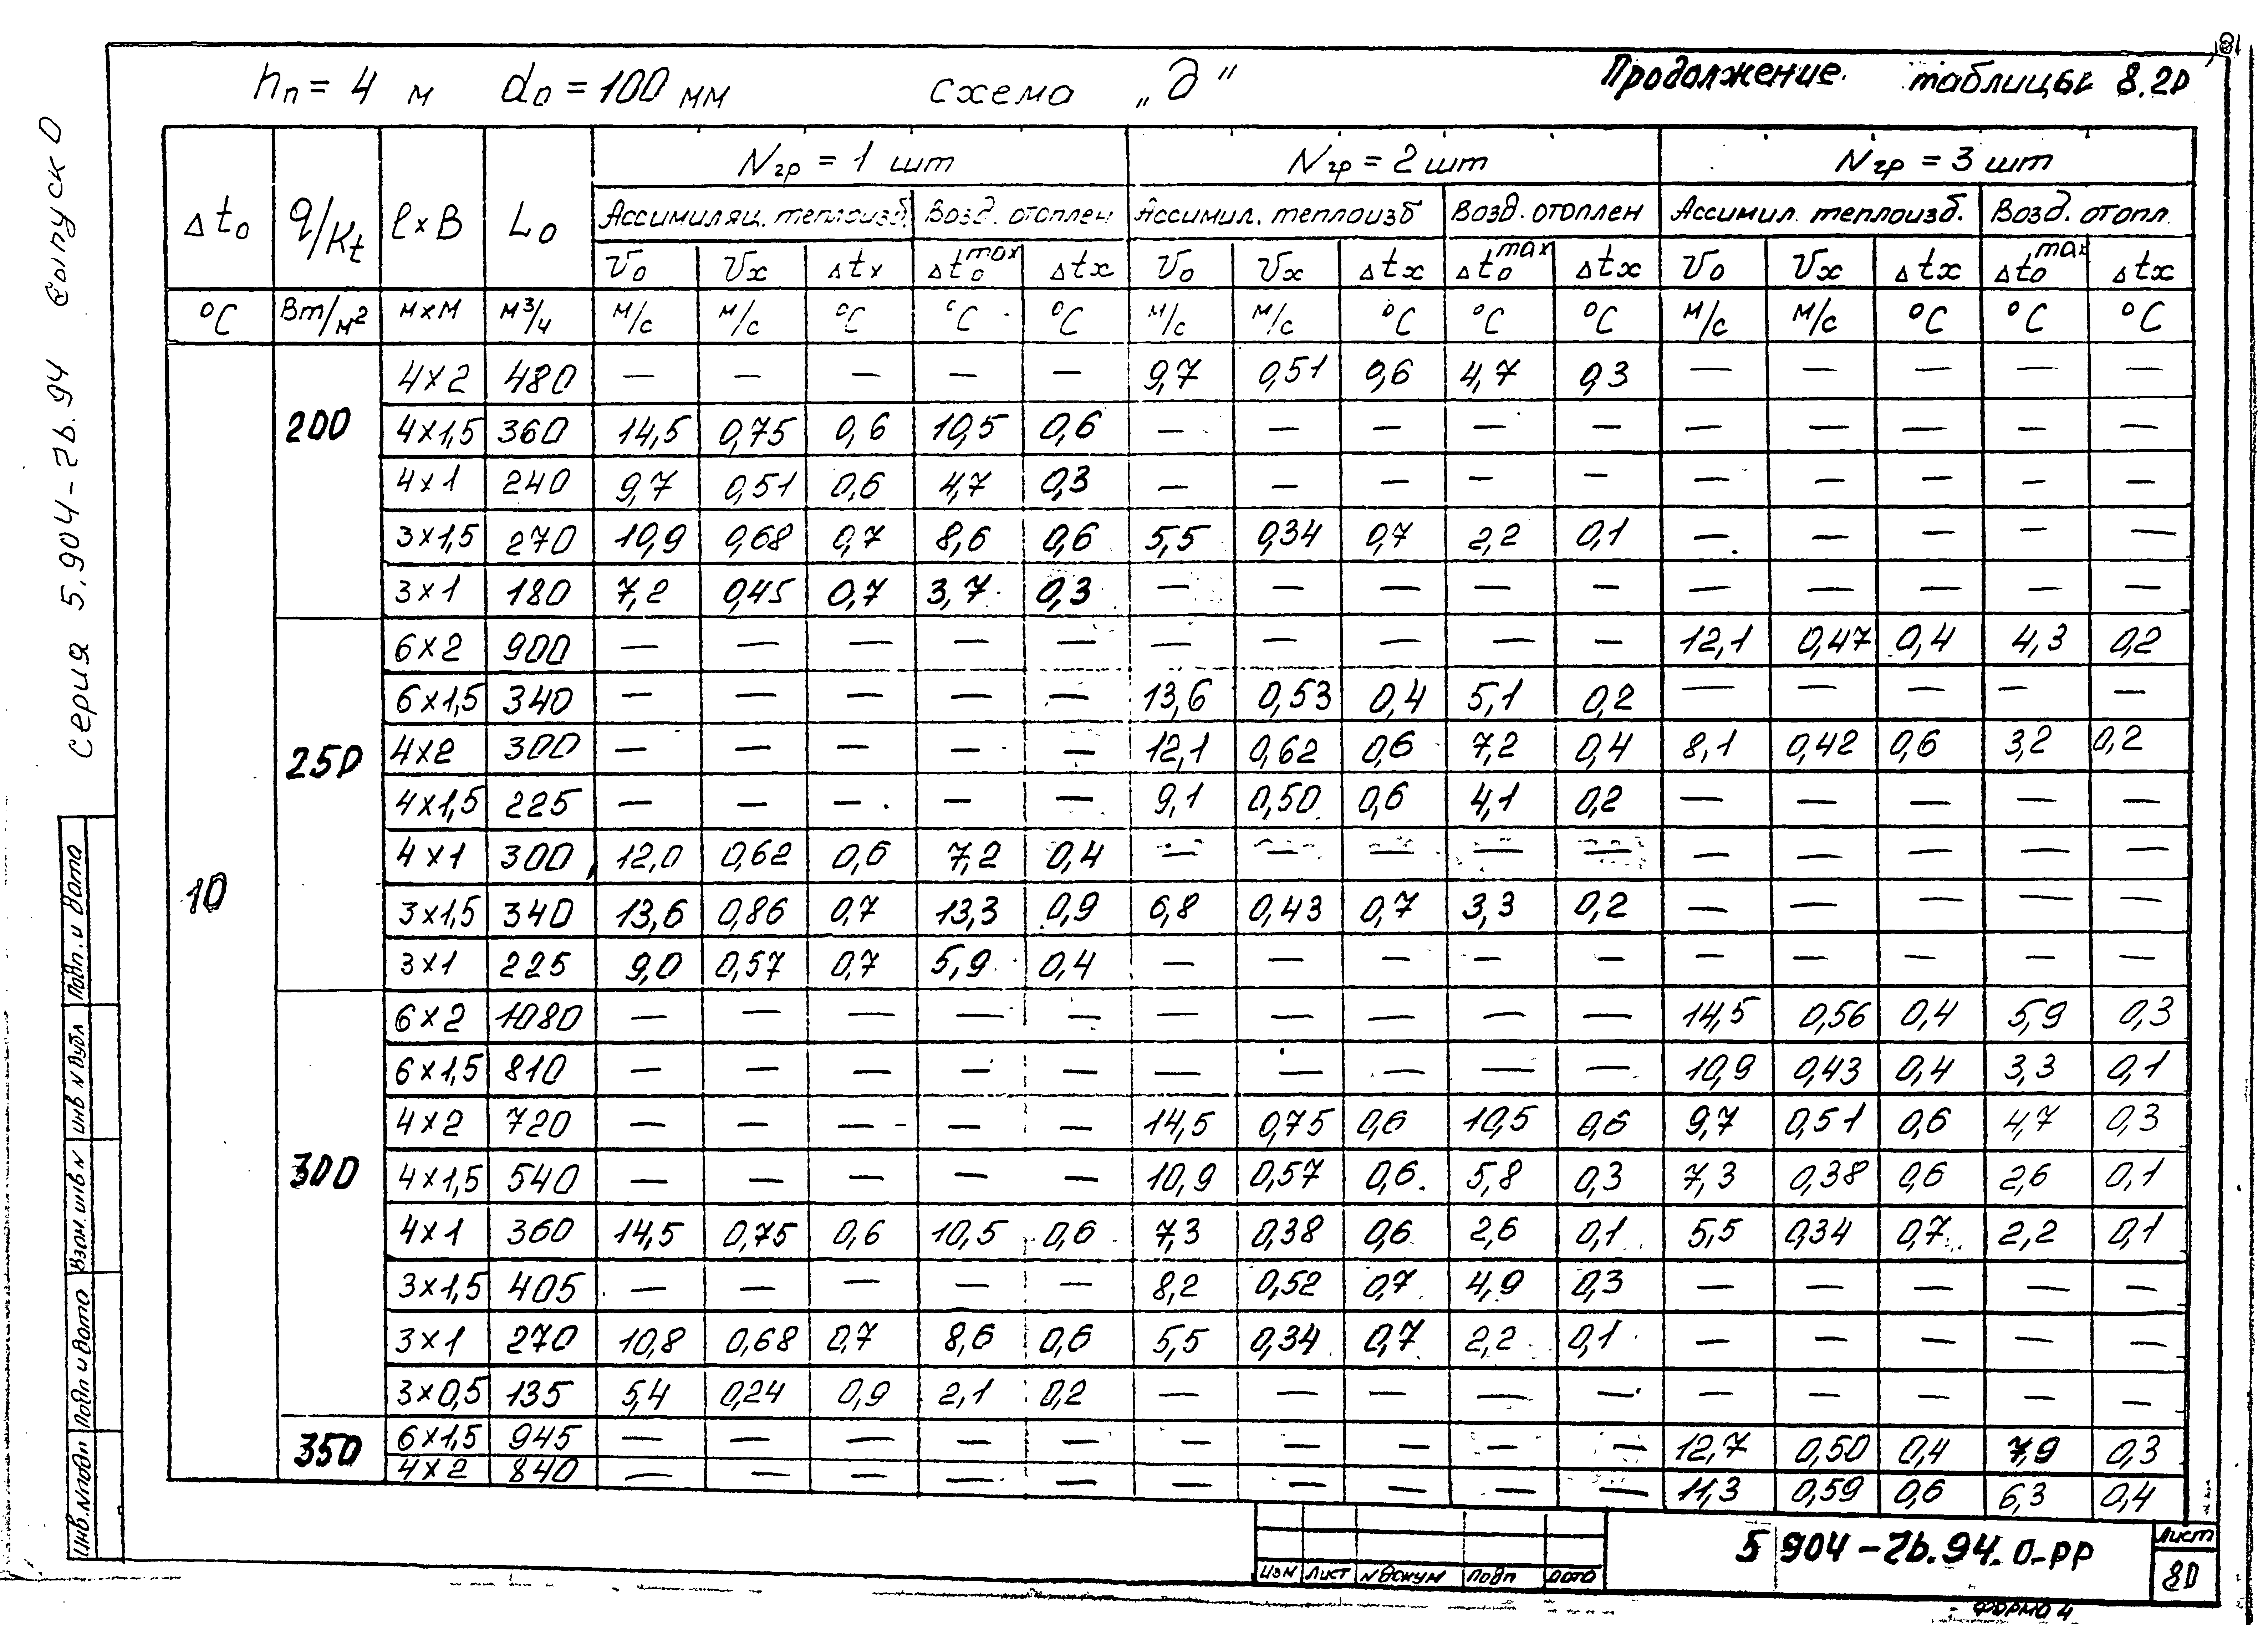 81
hп = 4 м dо = 100 мм схема „д" Продолжение таблицы 8.20
Δtо q/Kt l×B Lо Nгр = 1 шт Nгр = 2 шт Nгр = 3 шт
Ассимиляц. теплоизб. Возд. отоплен Ассимил. теплоизб Возд. отоплен Ассимил. теплоизб. Возд. отопл.
Vо Vx Δtx Δtоmax Δtx Vо Vx Δtx Δtоmax Δtx Vо Vx Δtx Δtоmax Δtx
°C Вт/м² м×м м³/ч м/с м/с °C °C °C м/с м/с °C °C °C м/с м/с °C °C °C
10
200
4×2 480 — — — — — 9,7 0,51 0,6 4,7 0,3 — — — — —
4×1,5 360 14,5 0,75 0,6 10,5 0,6 — — — — — — — — — —
4×1 240 9,7 0,51 0,6 4,7 0,3 — — — — — — — — — —
3×1,5 270 10,9 0,68 0,7 8,6 0,6 5,5 0,34 0,7 2,2 0,1 — — — — —
3×1 180 7,2 0,45 0,7 3,7 0,3 — — — — — — — — — —
250
6×2 900 — — — — — — — — — — 12,1 0,47 0,4 4,3 0,2
6×1,5 340 — — — — — 13,6 0,53 0,4 5,1 0,2 — — — — —
4×2 300 — — — — — 12,1 0,62 0,6 7,2 0,4 8,1 0,42 0,6 3,2 0,2
4×1,5 225 — — — — — 9,1 0,50 0,6 4,1 0,2 — — — — —
4×1 300 12,0 0,62 0,6 7,2 0,4 — — — — — — — — — —
3×1,5 340 13,6 0,86 0,7 13,3 0,9 6,8 0,43 0,7 3,3 0,2 — — — — —
3×1 225 9,0 0,57 0,7 5,9 0,4 — — — — — — — — — —
300
6×2 1080 — — — — — — — — — — 14,5 0,56 0,4 5,9 0,3
6×1,5 810 — — — — — — — — — — 10,9 0,43 0,4 3,3 0,1
4×2 720 — — — — — 14,5 0,75 0,6 10,5 0,6 9,7 0,51 0,6 4,7 0,3
4×1,5 540 — — — — — 10,9 0,57 0,6 5,8 0,3 7,3 0,38 0,6 2,6 0,1
4×1 360 14,5 0,75 0,6 10,5 0,6 7,3 0,38 0,6 2,6 0,1 5,5 0,34 0,7 2,2 0,1
3×1,5 405 — — — — — 8,2 0,52 0,7 4,9 0,3 — — — — —
3×1 270 10,8 0,68 0,7 8,6 0,6 5,5 0,34 0,7 2,2 0,1 — — — — —
3×0,5 135 5,4 0,24 0,9 2,1 0,2 — — — — — — — — — —
350
6×1,5 945 — — — — — — — — — — 12,7 0,50 0,4 7,9 0,3
4×2 840 — — — — — — — — — — 11,3 0,59 0,6 6,3 0,4
изм лист N докум подп дата
5 904-2в.94.0-РР
Лист
80
формо 4
серия 5.904-2в.94 выпуск 0
Подп. и дата
инв N дубл
Взам. инв N
Подп и дата
Инв. N подл